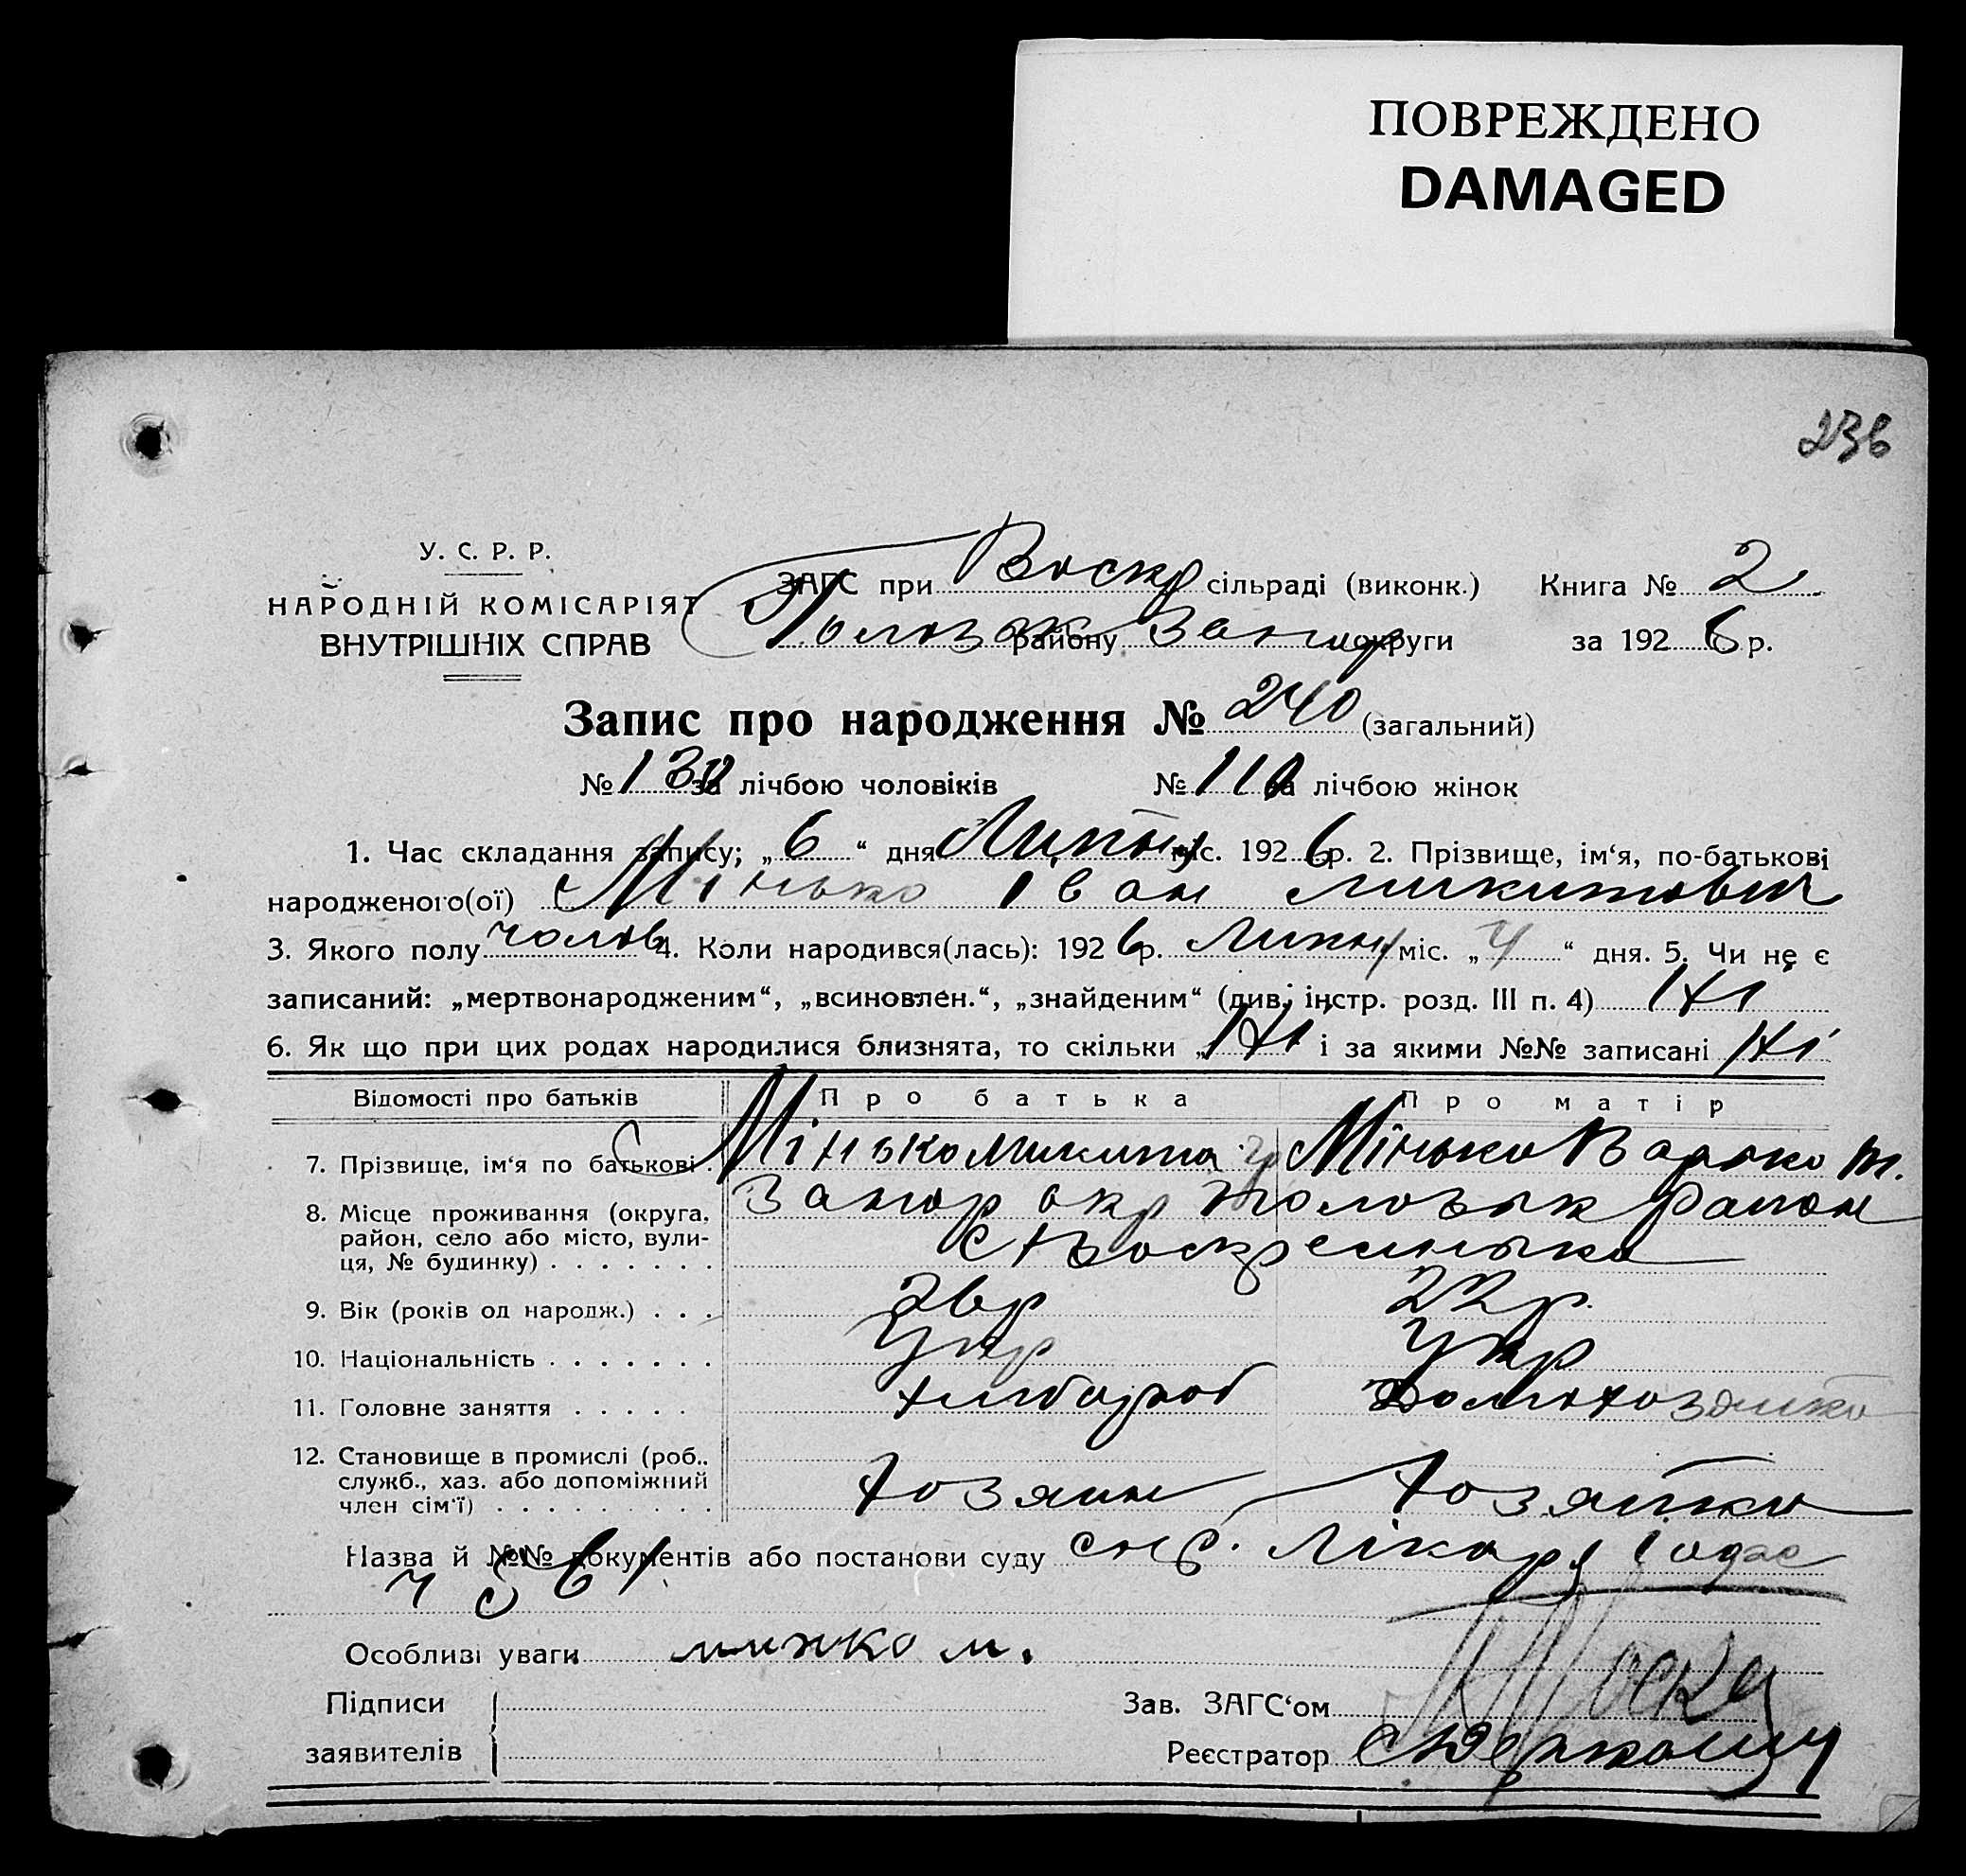 ПОВРЕЖДЕНО
DAMAGED
236
У. С. Р. Р.
НАРОДНІЙ КОМІСАРІЯТ
ВНУТРІШНІХ СПРАВ
ЗАГС при Воскр сільраді (виконк.) Книга № 2
району Запор округи за 1926 р.
Запис про народження № 240 (загальний)
№ 130 за лічбою чоловіків № 110 за лічбою жінок
1. Час складання запису; „ 6 “ дня Липня міс. 1926 р. 2. Прізвище, ім‘я, по-батькові
народженого(ої) Мінько Іван Микитович
3. Якого полу чолов 4. Коли народився(лась): 1926 р. Липня міс. „ 4 “ дня. 5. Чи не є
записаний: „мертвонародженим“, „всиновлен.“, „знайденим“ (див. інстр. розд. III п. 4) Ні
6. Як що при цих родах народилися близнята, то скільки „ Ні і за якими №№ записані Ні
Відомості про батьків Про батька Про матір
7. Прізвище, ім‘я по батькові. Мінько Микита Мінько Варька
8. Місце проживання (округа, Запор окр район
район, село або місто, вули-
ця, № будинку) . . . . . . . с Воскресенька
9. Вік (років од народж.) . . . 26р 22р.
10. Національність . . . . . . . Укр Укр
11. Головне заняття . . . . . хлібороб Домохозяйка
12. Становище в промислі (роб.,
служб., хаз. або допоміжний
член сім‘ї) . . . . . . . . . Хозяин Хозяйка
Назва й №№ документів або постанови суду Лікаря
Особливі уваги
Підписи
заявителів
Зав. ЗАГС‘ом
Реєстратор